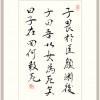 子畏於匡顏淵後
子曰吾以女為死矣
曰子在回何敢死